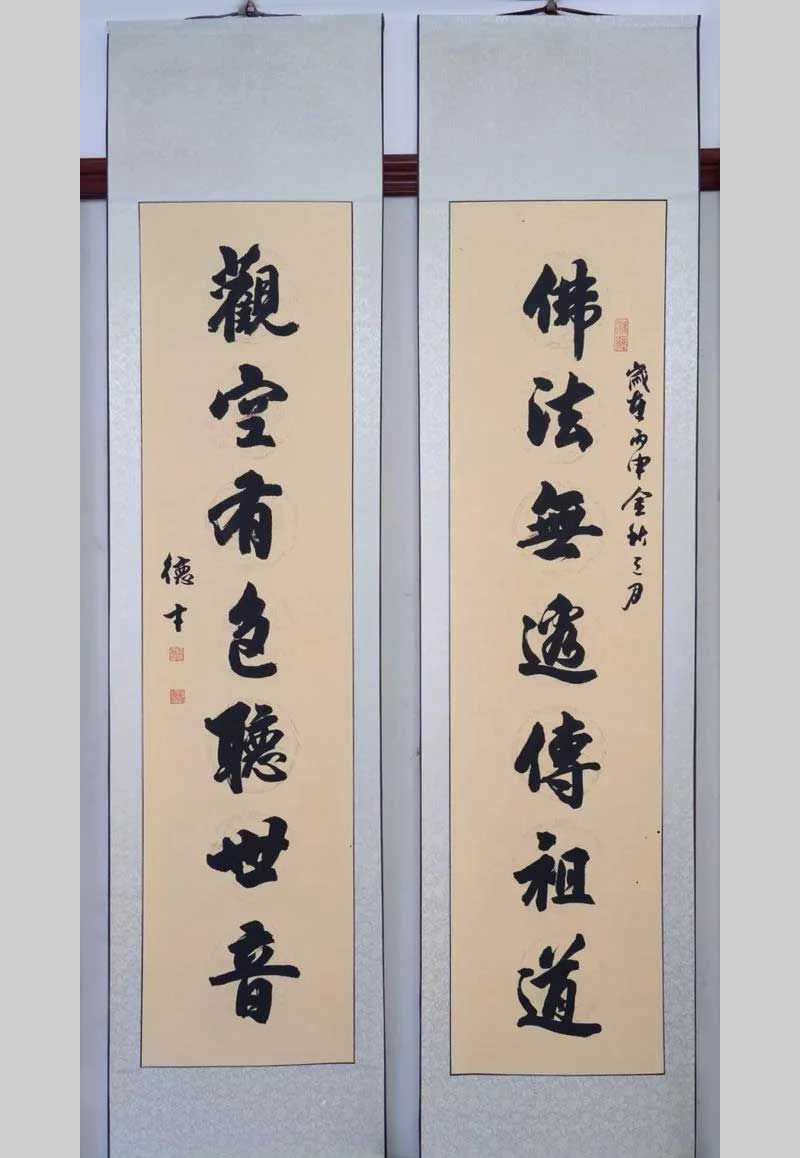 歲在丙申金秋之月
佛法無邊傳祖道
觀空有色聽世音
德